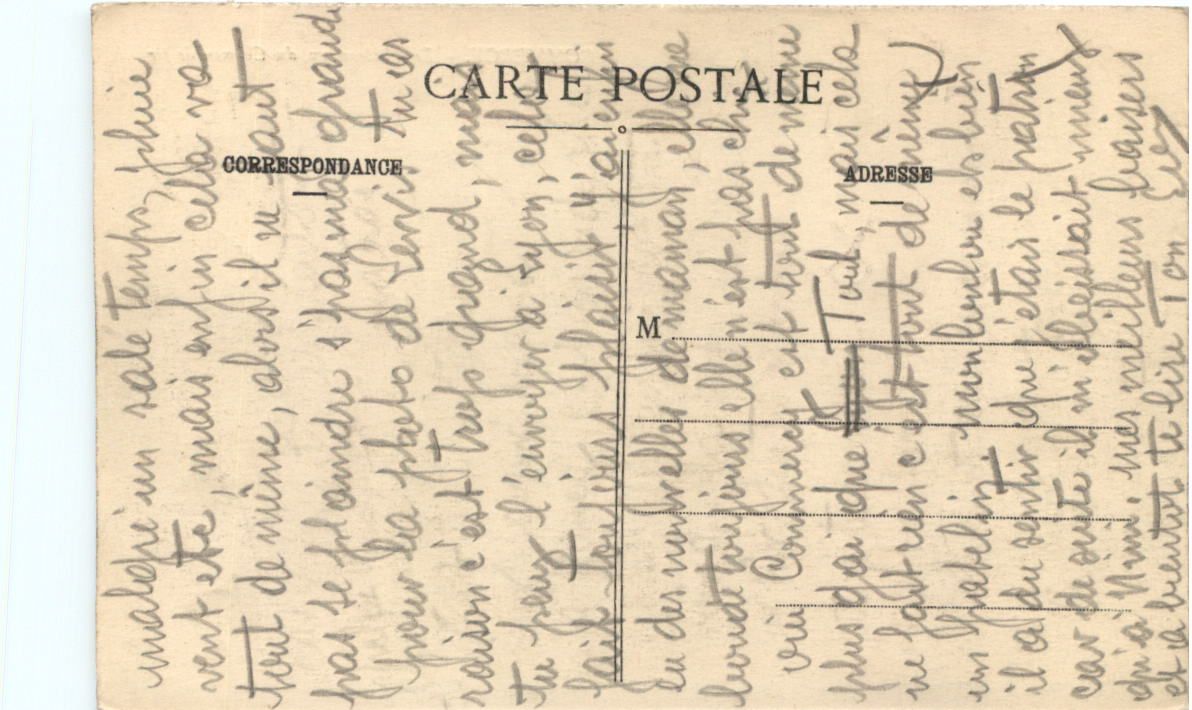 CARTE POSTALE
CORRESPONDANCE
ADRESSE
M
malgré un sale temps, pluie
vent etc, mais enfin cella va
tout de même, alors il ne faut
pas se plaindre
pour la photo de tu as
raison c'est trop grand, mais
tu peux l'envoyer à Lyon, cella
fait toujours plaisir j'ai bien
eu des nouvelles de maman, elle me
toujours elle n'est pas chez
Commercy est tout de même
plus gai que Toul, mais cela
ne fait rien c'est tout de même
un patelin es bien
il a du sentir que j'étais le patron
car de suite il m'obéissait mieux
qu'à Mme mes meilleurs baisers
et a bientot te lire Ton